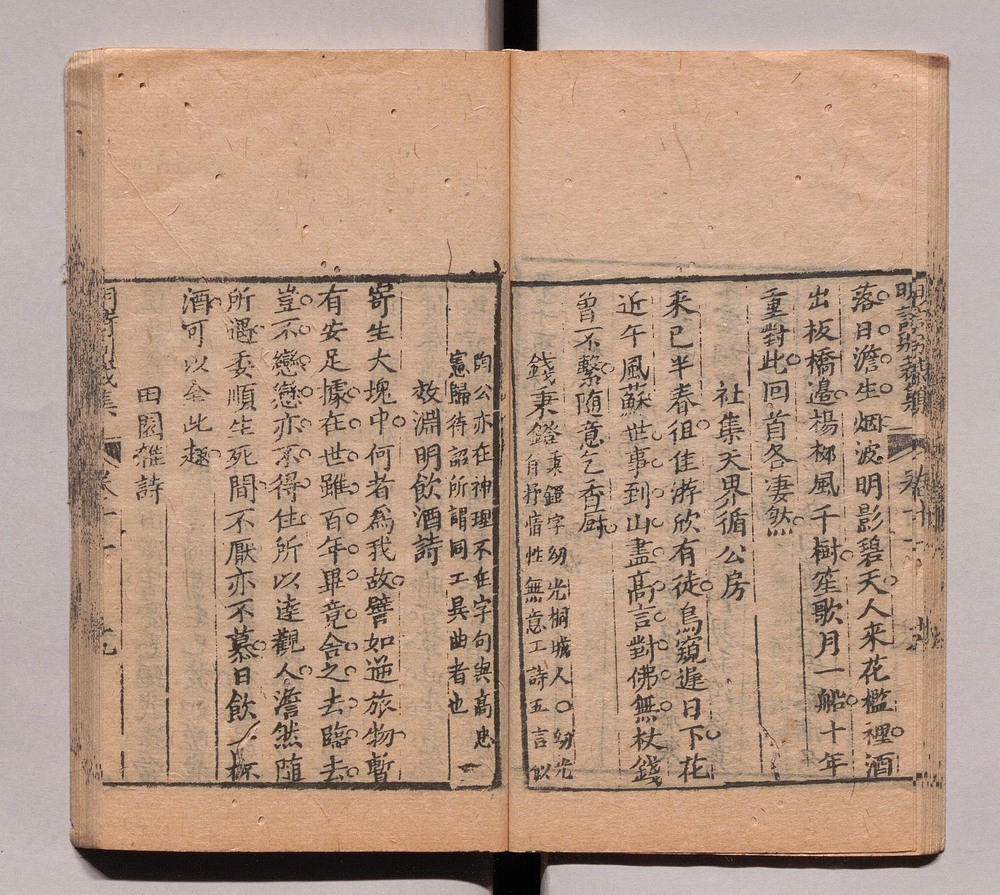 明詩別裁集
落日澹生烟波明影碧天人来花檻裡酒
出板橋邉楊栁風千樹笙歌月一船十年
重對此回首各凄然
社集天界循公房
来已半春徂佳游欣有徒鳥窺遲日下花
近午風蘇世事到山盡髙言對佛無杖錢
曽不繫随意乞香厨
錢秉鐙
秉鐙字幼光桐城人〇幼光
自抒情性無意工詩五言似
陶公亦在神理不在字句與髙忠
憲歸待詔所謂同工異曲者也
效淵明飲酒詩
寄生大塊中何者爲我故譬如逆旅物暫
有安足據在世雖百年畢竟舎之去臨去
豈不戀戀亦不得住所以達觀人澹然随
所遇委順生死間不厭亦不慕日飲一杯
酒可以全此趣
田園雜詩
卷十一